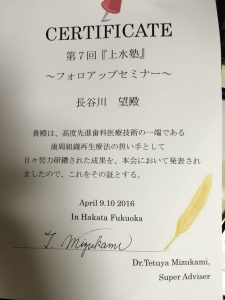 CERTIFICATE
第7回『上水塾』
～フォロアップセミナー～
長谷川 望殿
貴殿は、高度先進歯科医療技術の一端である
歯周組織再生療法の担い手として
日々努力研鑽された成果を、本会において発表され
ましたので、これをその証とする。
April 9.10 2016
In Hakata Fukuoka
T. Mizukami
Dr.Tetuya Mizukami,
Super Adviser